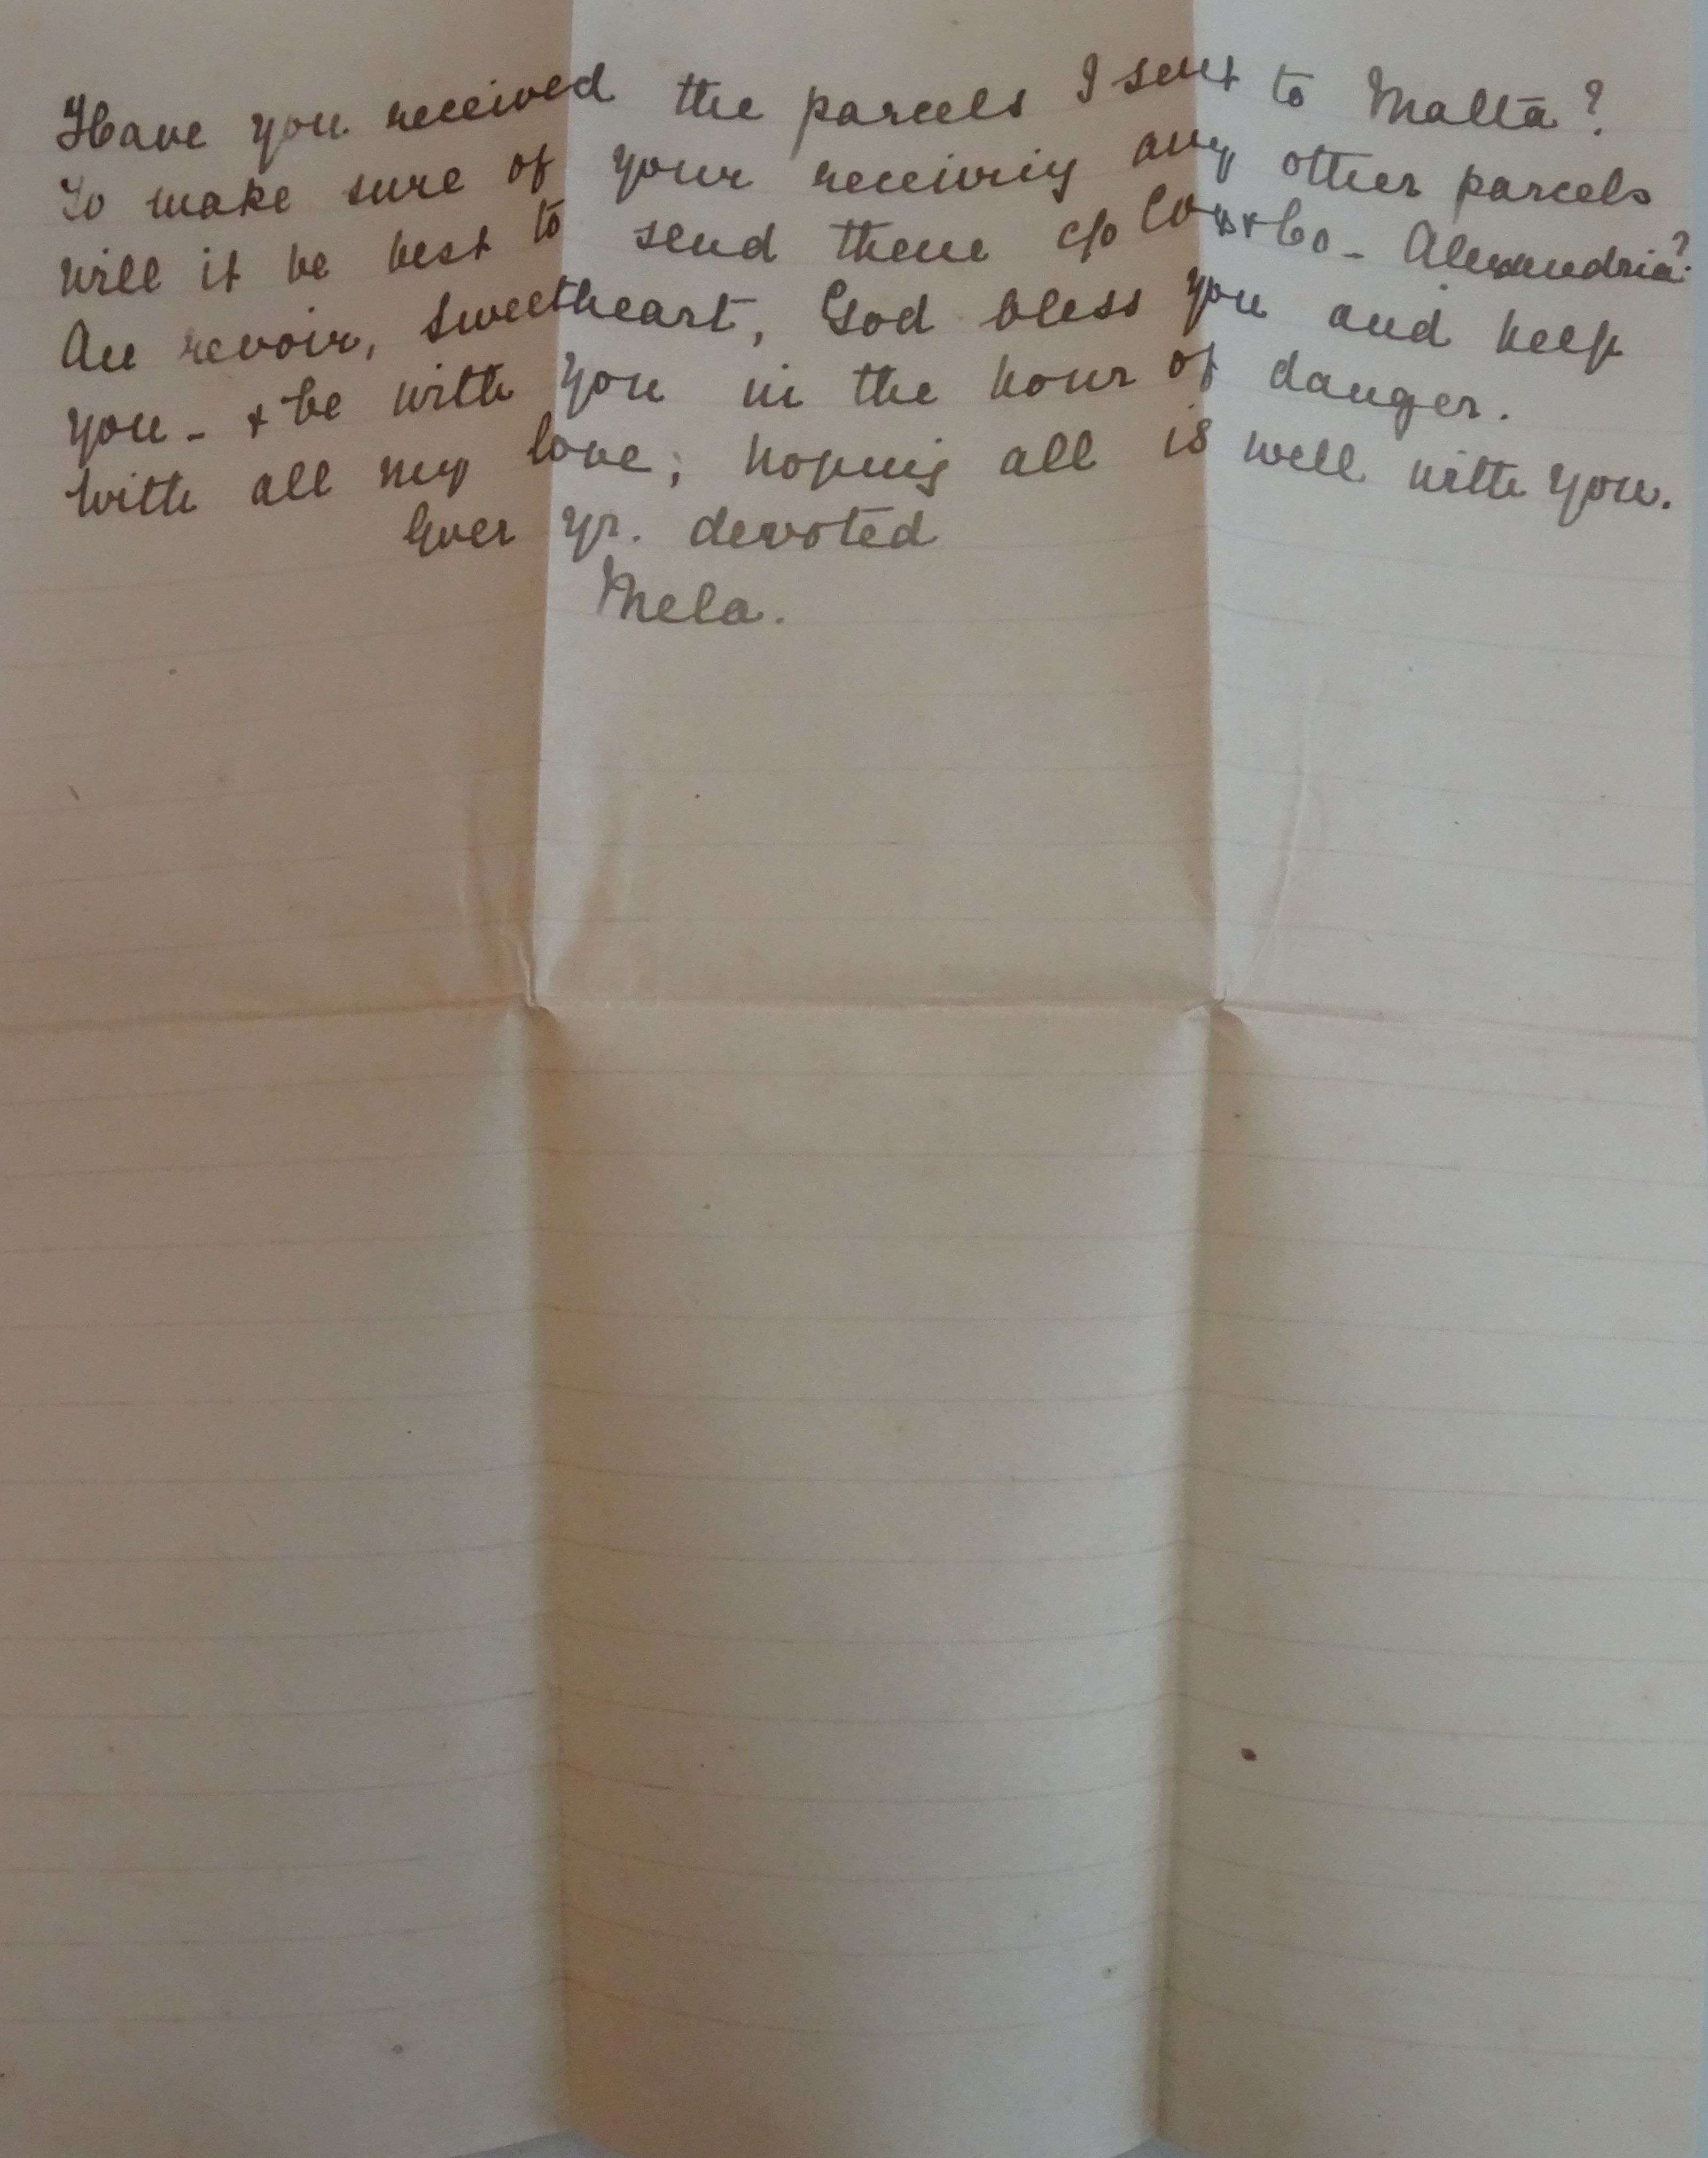 Have you received the parcels I sent to Malta?
To make sure of your receiving any other parcels
will it be best to send them c/o Cox & Co - Alexandria?
Au revoir, sweetheart, God bless you and keep
you - & be with you in the hour of danger.
With all my love; hoping all is well with you.
Ever yr. devoted
Mela.